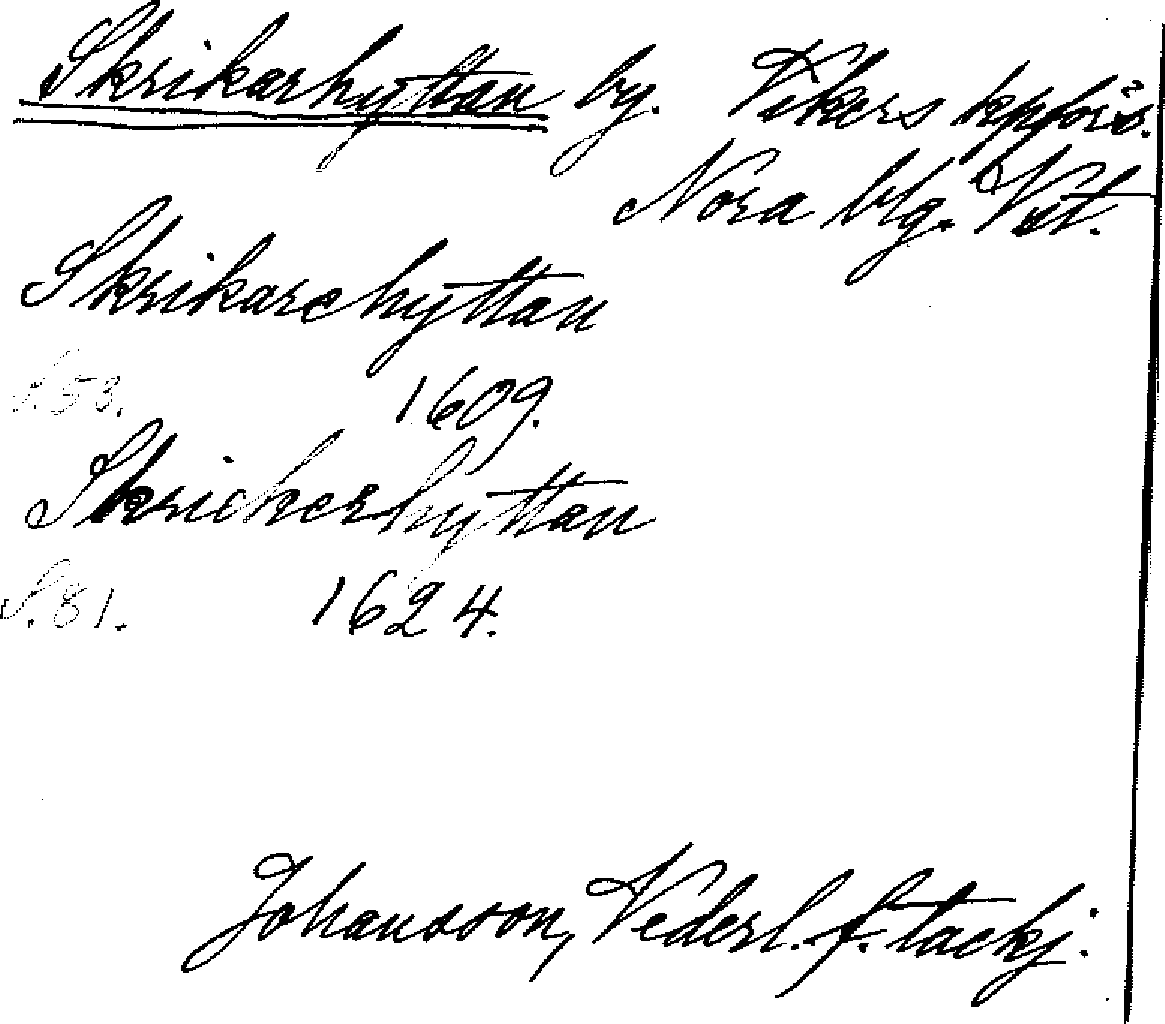 Skrikarhyttan by. Vikers kpförs.
Nora blg. Vst.
Skrikarehyttan
S.53. 1609.
Skrickerhyttan
S.81. 1624.
Johansson, Vederl. f. tackj.